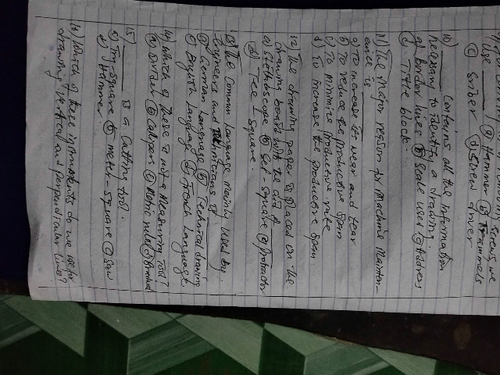 Use ______ a) Hammer b) Trammels
c) Scriber d) Screw driver
10) ______ contains all the information
necessary to identify a drawing.
a) border lines b) Scale used c)
d) Title block.
11) The major reason for Machine Mainten-
ance is
a) To increase its wear and tear
b) To reduce the productive span
c) To minimize productive rate
d) To increase the productive span
12) The drawing paper is placed on the
drawing board with the aid of
a) b) Set-Square c)
d) Tee-Square
13) The Common Language mainly used by
Engineers and is
a) German Language b) Technical drawing
c) English Language d) French Language
14) Which of these is not a Measuring tool?
a) b) Caliper c) Metric rule d)
15) ______ is a Cutting tool.
a) Try-Square b) Square c) Saw
d) Hammer
16) Which of these instruments do we use for
drawing vertical and perpendicular lines?